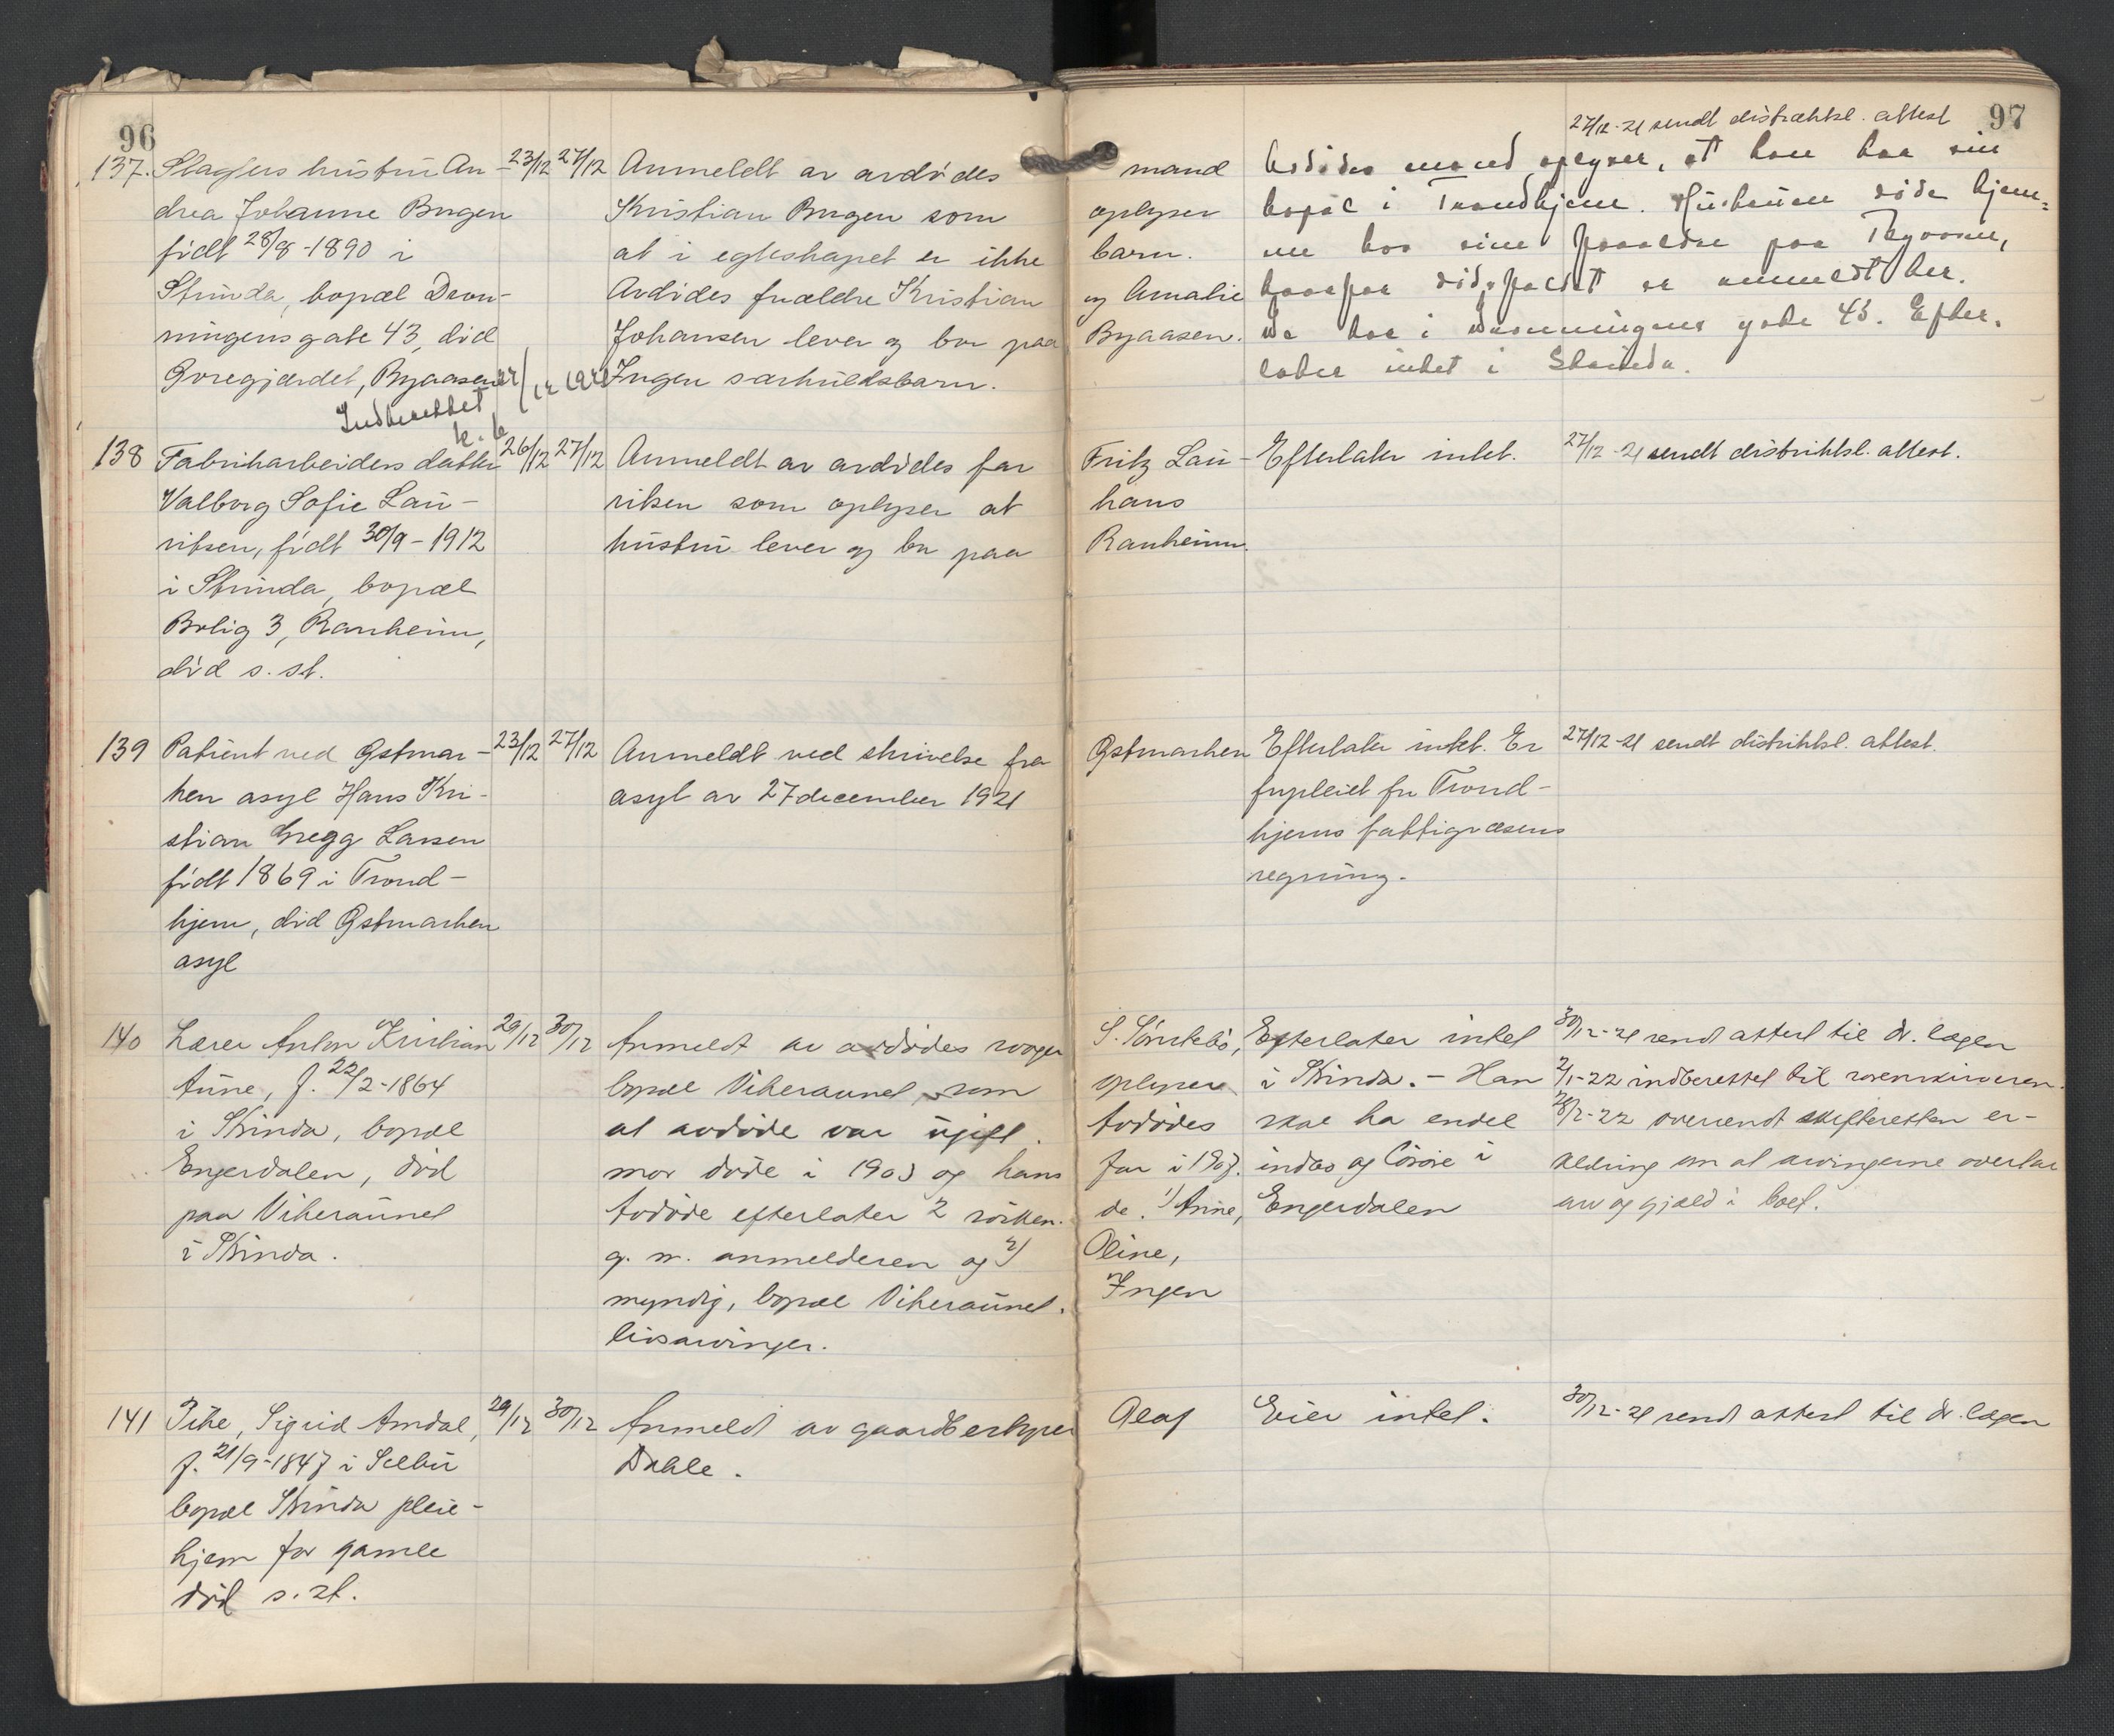 96
137. Slagters hustru An- 23/12 27/12 Anmeldt av avdødes mand
drea Johanne Brugen Kristian Brugen som oplyser
født 28/8-1890 i at i egteskapet er ikke barn.
Strinda, bopæl Dron- Avdødes forældre Kristian og Amalie
ningens gate 43, død Johansen lever og bor paa Byaasen.
Gregjærdet, Byaasen Ingen særkuldsbarn.
Indberettet
138 Fabrikarbeiders datter 26/12 27/12 Anmeldt av avdødes far Fritz Lau-
Valborg Sofie Lau- ritsen som oplyser at hans
ritsen, født 30/9-1912 hustru lever og bor paa Ranheim.
i Strinda, bopæl
Bolig 3, Ranheim,
død s. st.
139 Patient ved Østmar- 23/12 27/12 Anmeldt ved skrivelse fra Østmarken
ken asyl Hans Kri- asyl av 27 december 1921
stian Gregg Larsen
født 1869 i Trond-
hjem, død Østmarken
asyl
140 Lærer Anton Kristian 29/12 30/12 Anmeldt av avdødes svoger S. Sørslebø,
Aune, f. 22/2-1864 bopæl Vikeraunet, som oplyser
i Strinda, bopæl at avdøde var ugift. Avdødes
Engerdalen, død mor døde i 1903 og hans far i 1907.
paa Vikeraunet Avdøde efterlater 2 søsken. de. 1) Anne,
i Strinda. g. m. anmelderen og 2) Oline,
myndig, bopæl Vikeraunet. Ingen
livsarvinger.
141 Pike, Sigrid Amdal, 29/12 30/12 Anmeldt av gaardbestyrer Olaf
f. 21/9-1847 i Selbu Dahle.
bopæl Strinda pleie-
hjem for gamle
død s. st.
97
27/12-21 sendt distriktsl. attest
Avdødes mand oplyser, at han har sin
bopæl i Trondhjem. Hustruen døde hjem-
me hos sine forældre paa Byaasen,
hvorfor dødsfaldet er anmeldt her.
De bor i Dronningens gate 43. Efter-
later intet i Strinda.
Efterlater intet. 27/12-21 sendt distriktsl. attest.
Efterlater intet. Er 27/12-21 sendt distriktsl. attest.
forpleiet for Trond-
hjems fattigvæsens
regning.
Efterlater intet 30/12-21 sendt attest til dr. lægen
i Strinda. - Han 2/1-22 indberettet til sorenskriveren.
skal ha endel 28/2-22 oversendt skifteretten er-
indbo og løsøre i klæring om at arvingerne overtar
Engerdalen arv og gjæld i boet.
Eier intet. 30/12-21 sendt attest til dr. lægen